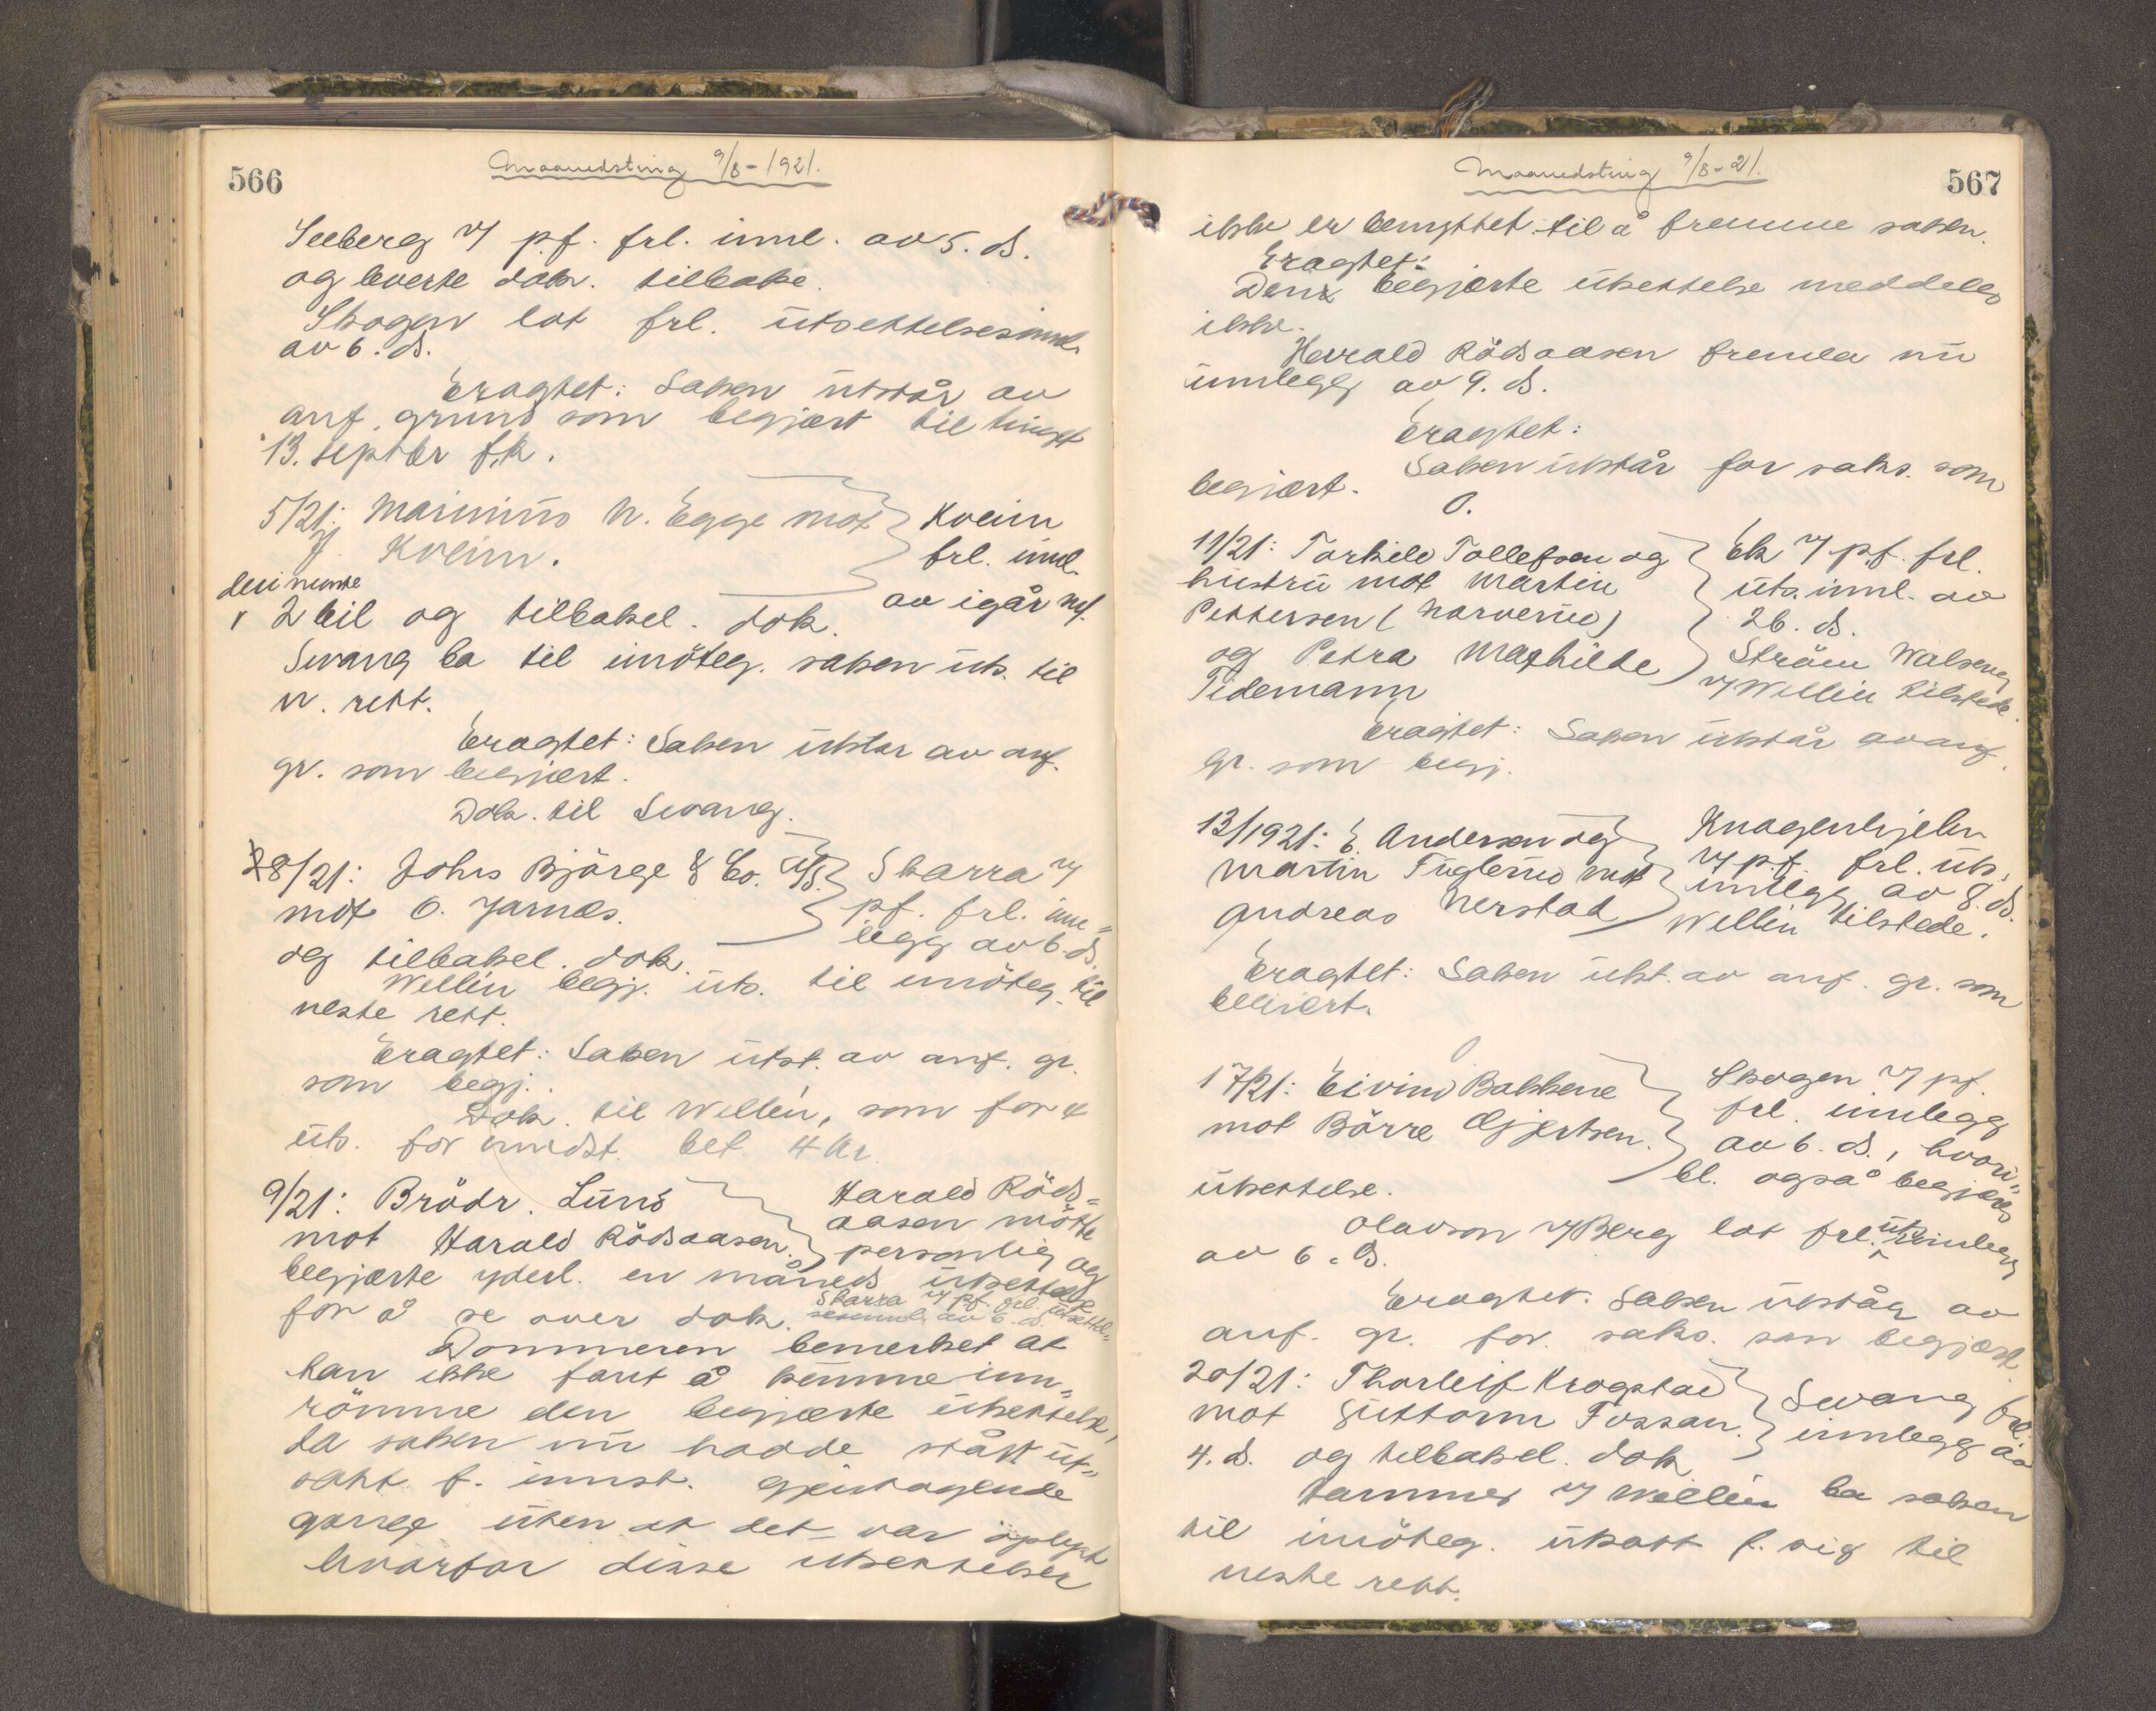 566
Maanedsting 9/8-1921.
Seeberg v/ p.f. frl. innl. av 5. ds.
og leverte dok. tilbake.
Skogen lot frl. utsettelsesinnl.
av 6. ds.
Eragtet: Saken utstår av
anf. grund som begjært til tinget
13. septbr f.k.
5/21: Marinius N. Egge mot
J. Kveim.
Kveim
frl. innl.
av igår m/.
deri nevnte
2 bil og tilbakel. dok.
Svang ba til imöteg. saken uts. til
n. rett.
Eragtet: Saken utstar av anf.
gr. som begjært.
Dok. til Svang.
8/21: Johs Bjørge & Co. A/S.
mot O. Jarnæs.
Skarra v/
pf. frl. inn=
legg av 6. ds.
og tilbakel. dok.
Wellén begj. uts. til imöteg. til
neste rett.
Eragtet: Saken utst. av anf. gr.
som begj.
Dok. til Wellén, som for
uts. for innst. bet. 4 kr.
9/21: Brödr. Lund
mot Harald Rödsaasen.
Harald Röds=
aasen mötte
personlig og
begjærte yderl. en måneds utsettelse
for å se over dok.
Skarra v/ pf. frl. utsettel=
sesinnl. av 6. ds.
Dommeren bemerket at
han ikke fant å kunne inn=
römme den begjærte utsettelse,
da saken nu hadde stått ut=
satt f. innst. gjentagende
gange uten at det var oplyst
hvorfor disse utsettelser
567
Maanedsting 9/8-21.
ikke er benyttet til å fremme saken.
Eragtet:
Den begjærte utsettelse meddeles
ikke.
Harald Rödsaasen fremla nu
innlegg av 9. ds.
Eragtet:
Saken utstår for saks. som
begjært.
11/21: Torkild Tollefsen og
hustru mot Martin
Pettersen (Narverud)
og Petra Mathilde
Tidemann
Ek v/ pf. frl.
uts. innl. av
26. ds.
Ström Walseng
v/ Wellén tilstede.
Eragtet: Saken utstår av anf.
gr. som begj.
13/1921: E. Andersen og
Martin Fuglerud mot
Andreas Nerstad
Knagenhjelm
v/ p.f. frl. uts.
innlegg av 8. ds.
Wellén tilstede.
Eragtet: Saken utst. av anf. gr. som
begjært.
17/21: Eivind Bakkene
mot Börre Gjertsen.
Skogen v/ pf.
frl. innlegg
av 6. ds., hvori=
bl. også begjæres
utsettelse.
Olavson v/ Berg lot frl. uts. innlegg
av 6. ds.
Eragtet: Saken utstår av
anf. gr. for. saks. som begjært.
20/21: Thorleif Krogstad
mot Guttorm Fossan.
Svang frl.
innlegg av
4. ds. og tilbakel. dok.
Hammer v/ Wellén ba saken
til imöteg. utsatt f. sig til
neste rett.